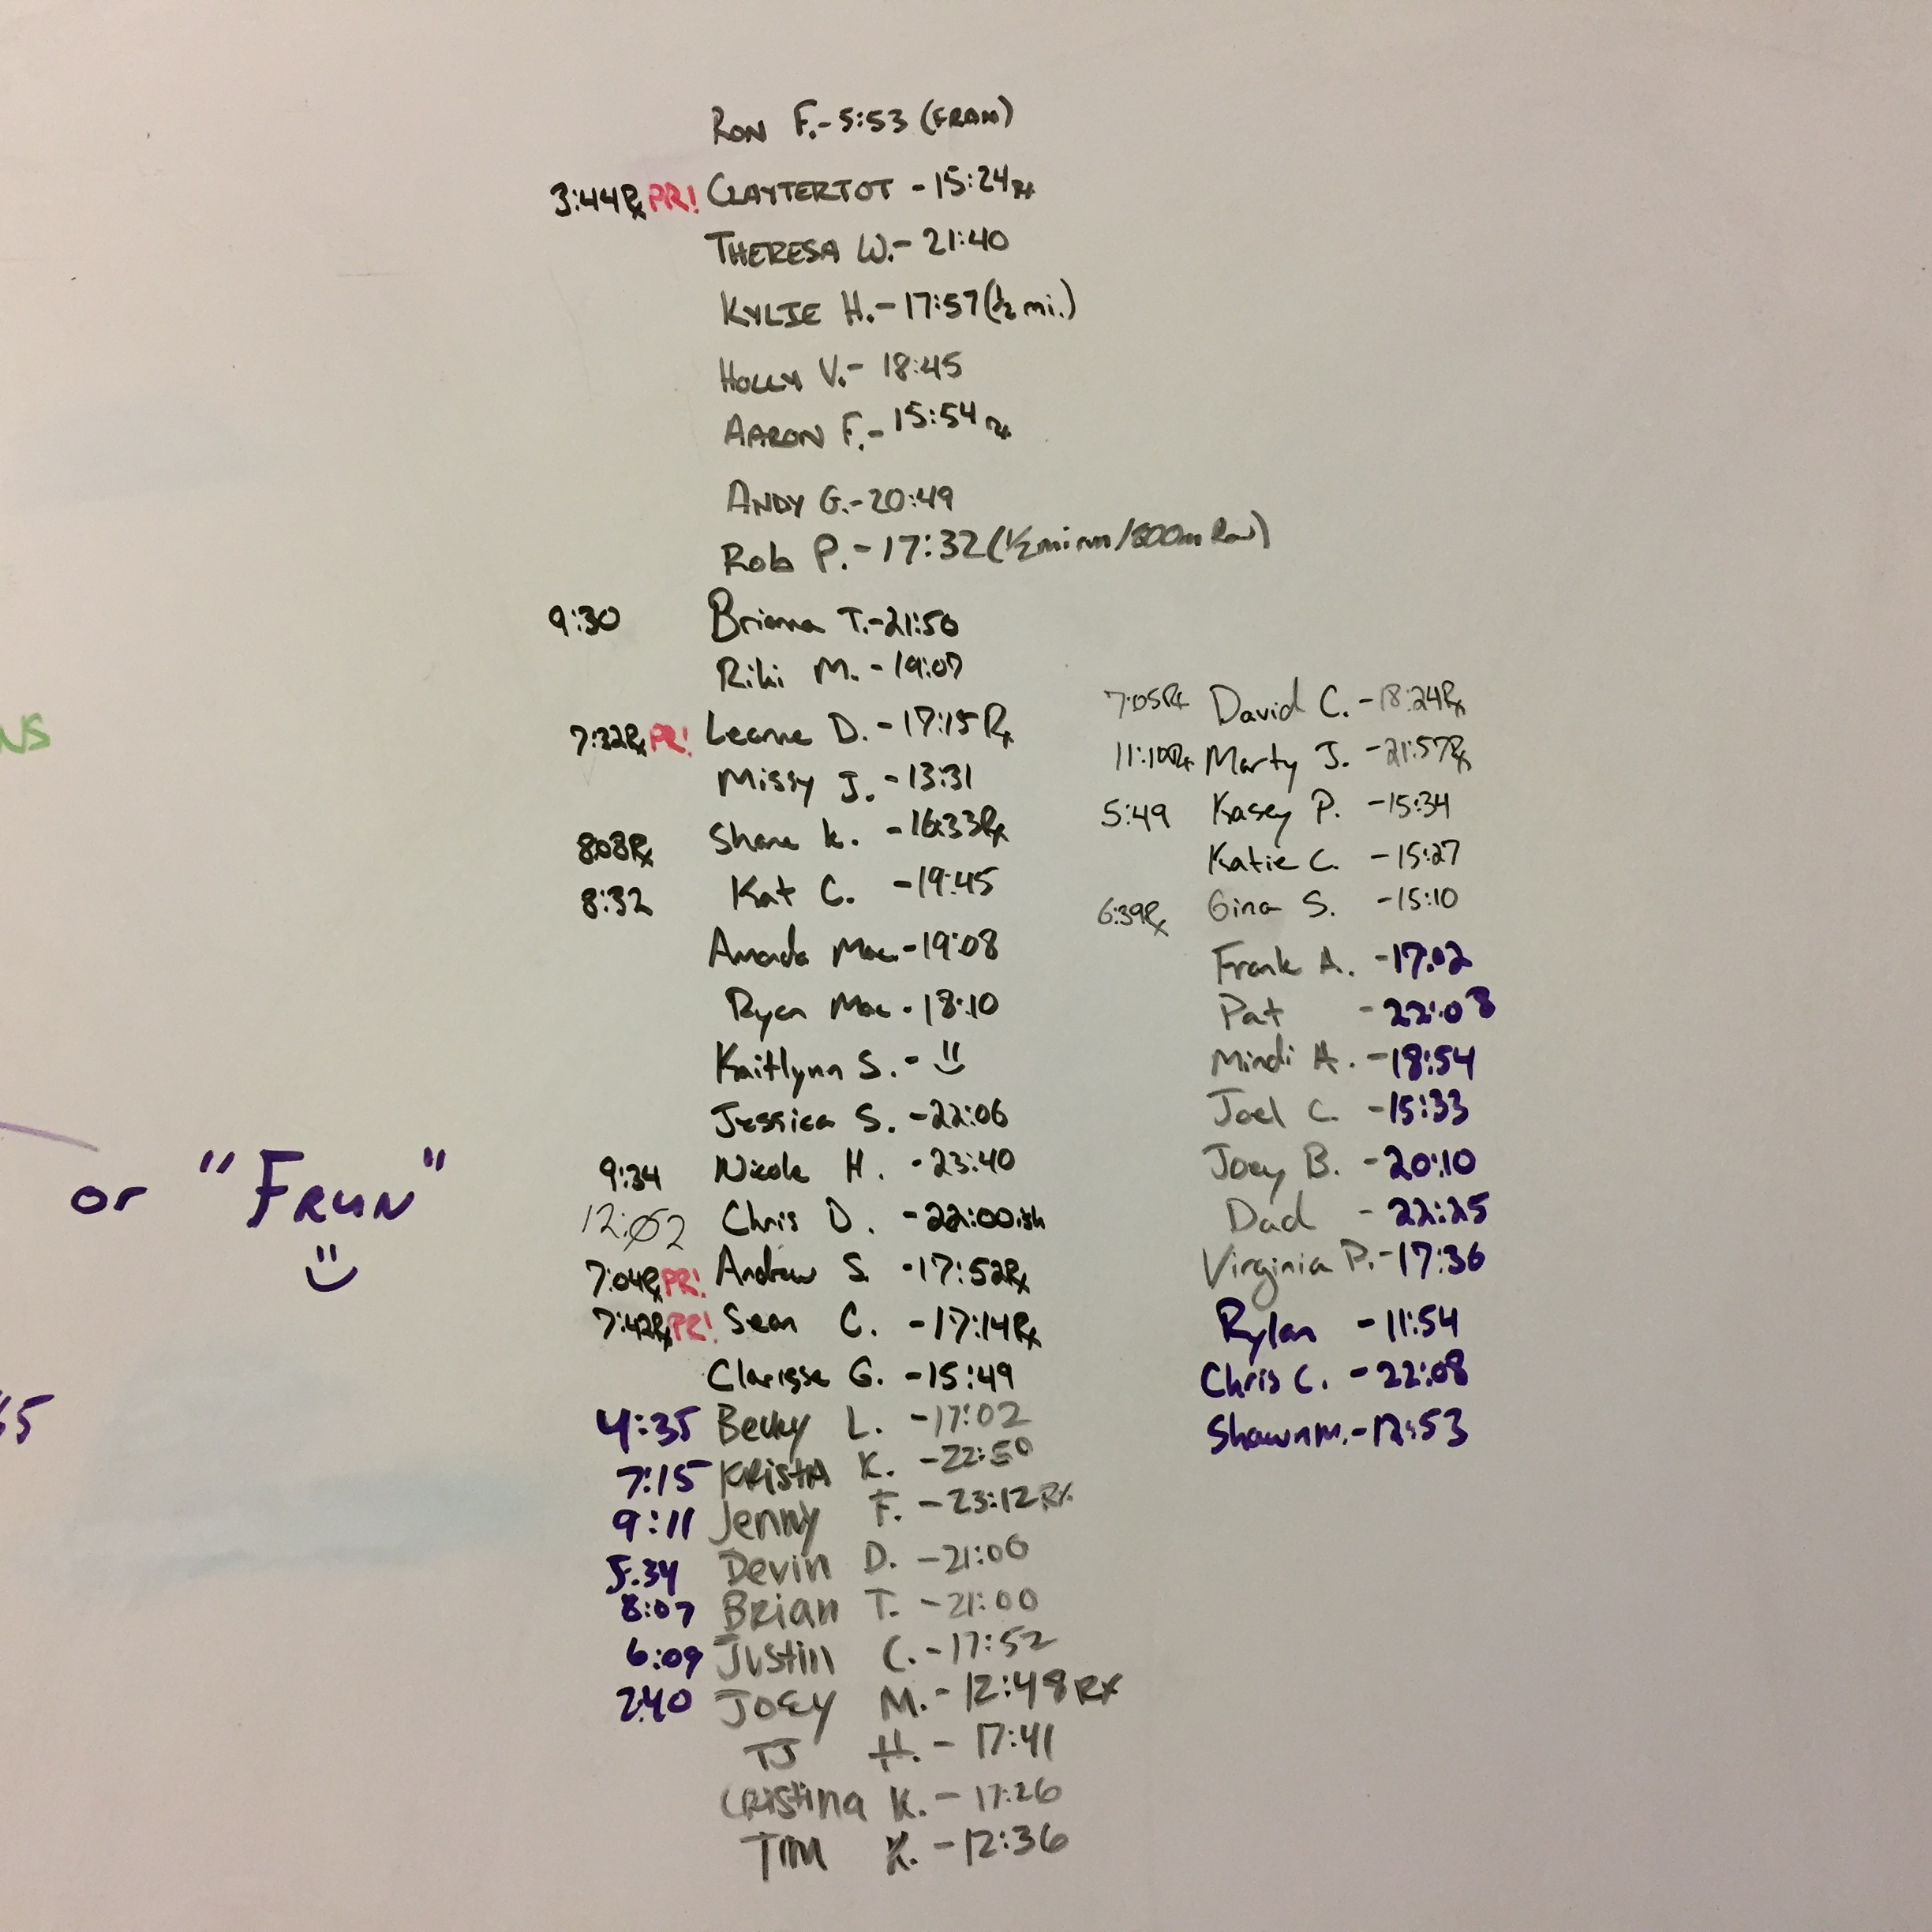 RON F.- 5:53 (FRAN)
3:44Rx PR! CLAYTERTOT - 15:24Rx
THERESA W.- 21:40
KYLIE H.- 17:57 (1/2 mi.)
HOLLY V.- 18:45
AARON F.- 15:54 Rx
ANDY G.- 20:49
Rob P. - 17:32 (1/2 mi run/800m Row)
9:30 Brianna T.-21:50
Riki M. - 19:07
7:32Rx PR! Leanne D. - 17:15 Rx
Missy J. - 13:31
8:08Rx Shane K. - 16:33Rx
8:32 Kat C. - 19:45
Amanda Mac. - 19:08
Ryan Mac. - 18:10
Kaitlynn S. -
Jessica S. - 22:06
9:34 Nicole H. - 23:40
12:02 Chris D. - 22:00ish
7:04Rx PR! Andrew S. - 17:52Rx
7:42Rx PR! Sean C. - 17:14Rx
Clarisse G. - 15:49
4:35 Becky L. - 17:02
7:15 KRISTA K. - 22:50
9:11 Jenny F. - 23:12 RX
5:34 Devin D. - 21:00
8:07 Brian T. - 21:00
6:09 Justin C. - 17:52
2:40 JOEY M. - 12:48 RX
TJ H. - 17:41
CRistina K. - 17:26
TIM K. - 12:36
7:05Rx David C. - 18:24Rx
11:10Rx Marty J. - 21:57Rx
5:49 Kasey P. - 15:34
Katie C. - 15:27
6:39Rx Gina S. - 15:10
Frank A. - 17:02
Pat - 22:08
Mindi H. - 18:54
Joel C. - 15:33
Joey B. - 20:10
Dad - 22:25
Virginia P. - 17:36
Rylan - 11:54
Chris C. - 22:08
Shawn M. - 12:53
NS
or "FRUN"
5